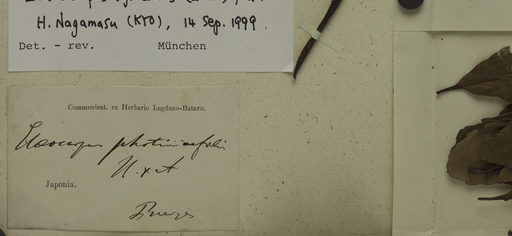 H. Nagamasu (KYO), 14 Sep. 1999.
Det. - rev. München
Communicat. ex Herbario Lugduno-Batavo.
Elaeocarpus photiniaefolia
H. et A
Japonia.